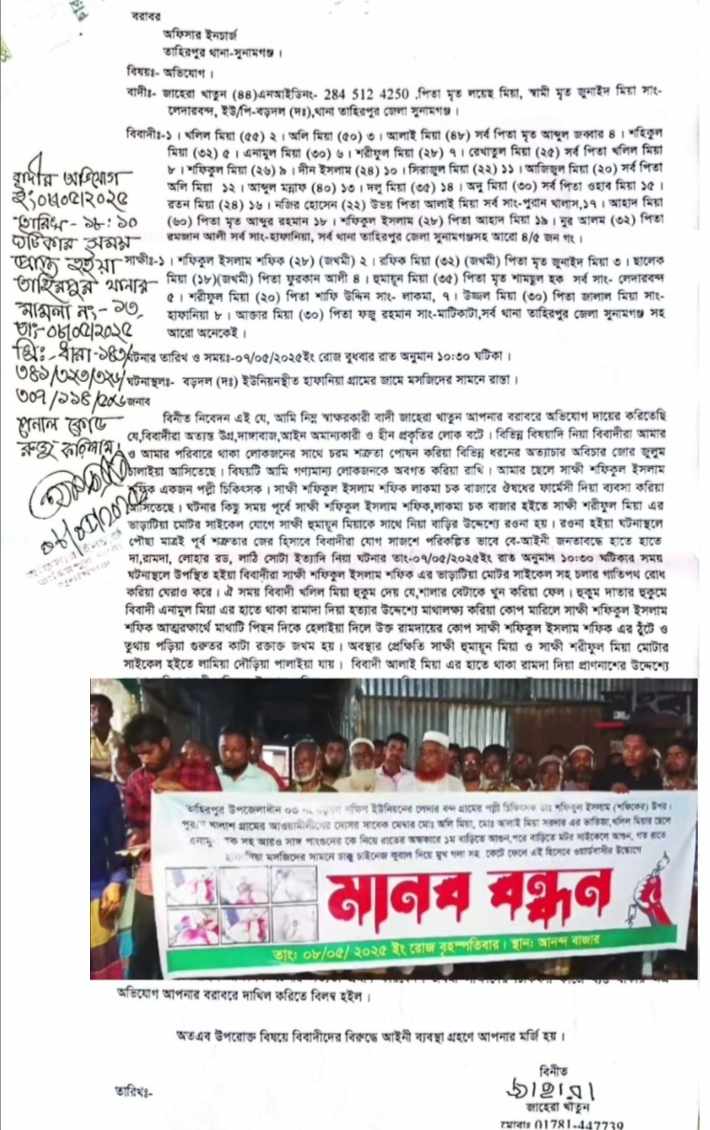 বরাবর
অফিসার ইনচার্জ
তাহিরপুর থানা-সুনামগঞ্জ।
বিষয়ঃ- অভিযোগ।
বাদীঃ- জাহেরা খাতুন (৪৪)এনআইডিনং- 284 512 4250 ,পিতা মৃত লয়েছ মিয়া, স্বামী মৃত জুনাইদ মিয়া সাং-
লেদারবন্দ, ইউ/পি-বড়দল (দঃ),থানা তাহিরপুর জেলা সুনামগঞ্জ।
বিবাদীঃ-১। খলিল মিয়া (৫৫) ২। অলি মিয়া (৫০) ৩। আলাই মিয়া (৪৮) সর্ব পিতা মৃত আব্দুল জব্বার ৪। শহিকুল
মিয়া (৩২) ৫। এনামুল মিয়া (৩০) ৬। শরীফুল মিয়া (২৮) ৭। রেখাতুল মিয়া (২৫) সর্ব পিতা খলিল মিয়া
৮। শফিকুল মিয়া (২৬) ৯। দীন ইসলাম (২৪) ১০। সিরাজুল মিয়া (২২) ১১। আজিজুল মিয়া (২০) সর্ব পিতা
অলি মিয়া ১২। আব্দুল মন্নাফ (৪০) ১৩। দলু মিয়া (৩৫) ১৪। অনু মিয়া (৩০) সর্ব পিতা ওহাব মিয়া ১৫।
রতন মিয়া (২৪) ১৬। নজির হোসেন (২২) উভয় পিতা আলাই মিয়া সর্ব সাং-পুরান খালাস,১৭। আহাদ মিয়া
(৬০) পিতা মৃত আব্দুর রহমান ১৮। শফিকুল ইসলাম (২৮) পিতা আহাদ মিয়া ১৯। নুর আলম (৩২) পিতা
রমজান আলী সর্ব সাং-হাফানিয়া, সর্ব থানা তাহিরপুর জেলা সুনামগঞ্জসহ আরো ৪/৫ জন গং।
সাক্ষীঃ-১। শফিকুল ইসলাম শফিক (২৮) (জখমী) ২। রফিক মিয়া (৩২) (জখমী) পিতা মৃত জুনাইদ মিয়া ৩। ছালেক
মিয়া (১৮)(জখমী) পিতা ফুরকান আলী ৪। হুমায়ুন মিয়া (৩৫) পিতা মৃত শামছুল হক সর্ব সাং- লেদারবন্দ
৫। শরীফুল মিয়া (২০) পিতা শাফি উদ্দিন সাং- লাকমা, ৭। উজ্জল মিয়া (৩০) পিতা জালাল মিয়া সাং-
হাফানিয়া ৮। আক্তার মিয়া (৩০) পিতা ফজু রহমান সাং-মাটিকাটা,সর্ব থানা তাহিরপুর জেলা সুনামগঞ্জ সহ
আরো অনেকেই।
ঘটনার তারিখ ও সময়ঃ-০৭/০৫/২০২৫ইং রোজ বুধবার রাত অনুমান ১০:৩০ ঘটিকা।
ঘটনাস্থলঃ- বড়দল (দঃ) ইউনিয়নস্থীত হাফানিয়া গ্রামের জামে মসজিদের সামনে রাস্তা।
জনাব
বিনীত নিবেদন এই যে, আমি নিম্ন স্বাক্ষরকারী বাদী জাহেরা খাতুন আপনার বরাবরে অভিযোগ দায়ের করিতেছি
যে,বিবাদীরা অত্যন্ত উগ্র,দাঙ্গাবাজ,আইন অমান্যকারী ও হীন প্রকৃতির লোক বটে। বিভিন্ন বিষয়াদি নিয়া বিবাদীরা আমার
ও আমার পরিবারে থাকা লোকজনের সাথে চরম শত্রুতা পোষন করিয়া বিভিন্ন ধরনের অত্যাচার অবিচার জোর জুলুম
চালাইয়া আসিতেছে। বিষয়টি আমি গণ্যমান্য লোকজনকে অবগত করিয়া রাখি। আমার ছেলে সাক্ষী শফিকুল ইসলাম
শফিক একজন পল্লী চিকিৎসক। সাক্ষী শফিকুল ইসলাম শফিক লাকমা চক বাজারে ঔষধের ফার্মেসী দিয়া ব্যবসা করিয়া
আসিতেছে। ঘটনার কিছু সময় পূর্বে সাক্ষী শফিকুল ইসলাম শফিক,লাকমা চক বাজার হইতে সাক্ষী শরীফুল মিয়া এর
ভাড়াটিয়া মোটর সাইকেল যোগে সাক্ষী হুমায়ুন মিয়াকে সাথে নিয়া বাড়ির উদ্দেশ্যে রওনা হয়। রওনা হইয়া ঘটনাস্থলে
পৌছা মাত্রই পূর্ব শত্রুতার জের হিসাবে বিবাদীরা যোগ সাজশে পরিকল্পিত ভাবে বে-আইনী জনতাবদ্ধে হাতে হাতে
দা,রামদা, লোহার রড, লাঠি সোটা ইত্যাদি নিয়া ঘটনার তাং-০৭/০৫/২০২৫ইং রাত অনুমান ১০:৩০ ঘটিকার সময়
ঘটনাস্থলে উপস্থিত হইয়া বিবাদীরা সাক্ষী শফিকুল ইসলাম শফিক এর ভাড়াটিয়া মোটর সাইকেল সহ চলার গতিপথ রোধ
করিয়া ঘেরাও করে। ঐ সময় বিবাদী খলিল মিয়া হুকুম দেয় যে,শালার বেটাকে খুন করিয়া ফেল। হুকুম দাতার হুকুমে
বিবাদী এনামুল মিয়া এর হাতে থাকা রামাদা দিয়া হত্যার উদ্দেশ্যে মাথালক্ষ্য করিয়া কোপ মারিলে সাক্ষী শফিকুল ইসলাম
শফিক আত্মরক্ষার্থে মাথাটি পিছন দিকে হেলাইয়া দিলে উক্ত রামদায়ের কোপ সাক্ষী শফিকুল ইসলাম শফিক এর ঠুঁটে ও
তুথায় পড়িয়া গুরুতর কাটা রক্তাক্ত জখম হয়। অবস্থার প্রেক্ষিতি সাক্ষী হুমায়ুন মিয়া ও সাক্ষী শরীফুল মিয়া মোটার
সাইকেল হইতে লামিয়া দৌড়িয়া পালাইয়া যায়। বিবাদী আলাই মিয়া এর হাতে থাকা রামদা দিয়া প্রাণনাশের উদ্দেশ্যে
বাদীর অভিযোগ
ইং০৮/০৫/২০২৫
তারিখ- ১৮:১০
ঘটিকার সময়
প্রাপ্ত হইয়া
তাহিরপুর থানার
মামলা নং-১৩,
তাং-০৮/০৫/২০২৫
খ্রিঃ, ধারা-১৪৩/
৩৪১/৩২৩/৩২৬/
৩০৭/১১৪/৫০৬
পেনাল কোডে
রুজু করিলাম।
০৮/০৫/২০২৫
তাহিরপুর উপজেলাধীন ০৩ নং বড়দল দক্ষিণ ইউনিয়নের লেদার বন্দ গ্রামের পল্লী চিকিৎসক ডাঃ শফিকুল ইসলাম (শফিকের) উপর।
খালাশ গ্রামের আওয়ামীলীগের দোসর সাবেক মেম্বার মোঃ অলি মিয়া, মোঃ আলাই মিয়া সরদার এর ভাতিজা,খলিল মিয়ার ছেলে
সহ আরও সাঙ্গ পাংগুদের কে নিয়ে রাতের অন্ধকারে ১ম বাড়িতে আগুন,পরে বাড়িতে মটর সাইকেলে আগুন, গত রাতে
মসজিদের সামনে চাক্কু চাইনেজ কুরাল দিয়ে মুখ গলা সহ কেটে ফেলে এই হিসেবে ওয়ার্ডবাসীর উদ্যোগে
মানব বন্ধন
তাং: ০৮/০৫/ ২০২৫ ইং রোজ বৃহস্পতিবার। স্থান: আনন্দ বাজার
অভিযোগ আপনার বরাবরে দাখিল করিতে বিলম্ব হইল।
অতএব উপরোক্ত বিষয়ে বিবাদীদের বিরুদ্ধে আইনী ব্যবস্থা গ্রহণে আপনার মর্জি হয়।
বিনীত
জাহেরা
তারিখঃ-
জাহেরা খাতুন
মোবাঃ 01781-447739